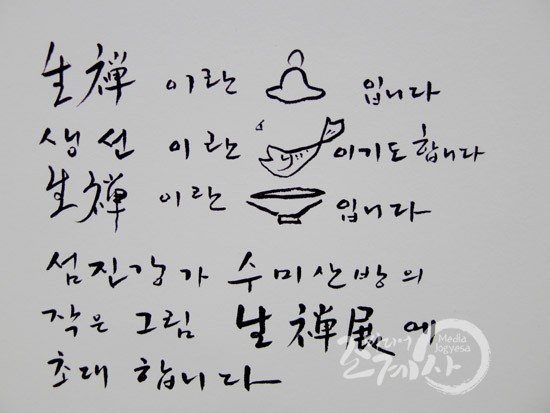 生禅 이란 입니다
생선 이란 이기도 합니다
生禅 이란 입니다
섬진강가 수미산방의
작은 그림 生禅展에
초대 합니다
미디어 조계사 Media Jogyesa